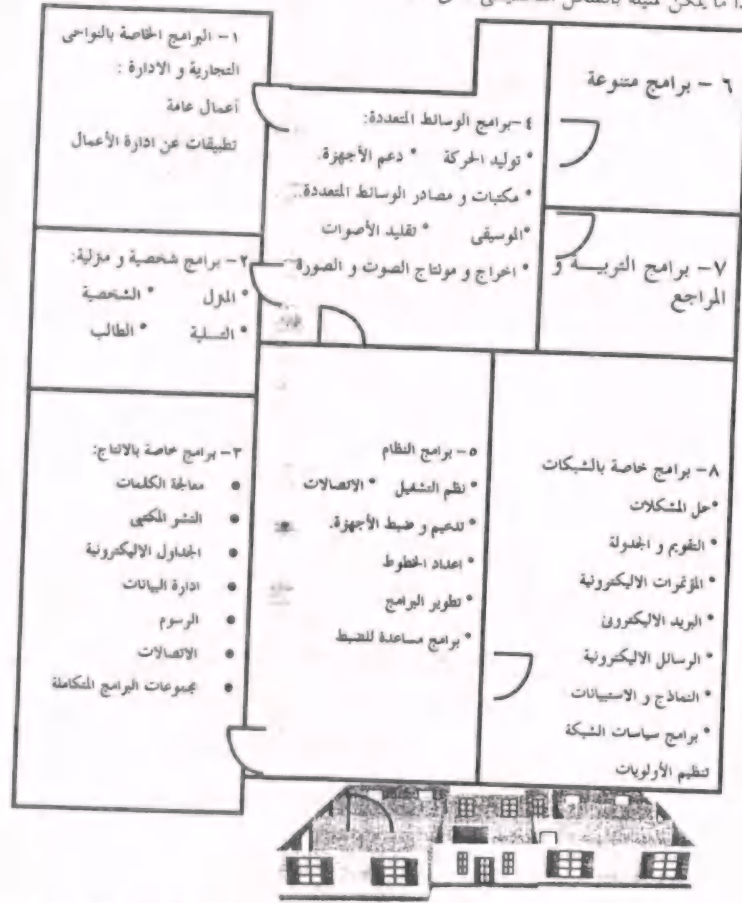 ما يمكن تمثيله بالشكل
١- البرامج الخاصة بالنواحى
التجارية و الادارة :
أعمال عامة
تطبيقات عن ادارة الأعمال
٢- برامج شخصية و منزلية:
• المنزل • الشخصية
• التسلية • الطالب
٣- برامج خاصة بالانتاج:
• معالجة الكلمات
• النشر المكتبى
• الجداول الاليكترونية
• ادارة البيانات
• الرسوم
• الاتصالات
• مجموعات البرامج المتكاملة
٤-برامج الوسائط المتعددة:
• توليد الحركة • دعم الأجهزة.
• مكتبات و مصادر الوسائط المتعددة..
•الموسيقى • تقليد الأصوات
• اخراج و مونتاج الصوت و الصورة
٥- برامج النظام
• نظم التشغيل • الاتصالات
• تدعيم و ضبط الأجهزة.
• اعداد الخطوط
• تطوير البرامج
• برامج مساعدة للضبط
٦ - برامج متنوعة
٧- برامج التربيــة و
المراجع
٨- برامج خاصة بالشبكات
•حل المشكلات
• التقويم و الجدولة
• المؤتمرات الاليكترونية
• البريد الاليكترونى
• الرسائل الاليكترونية
• النماذج و الاستبيانات
• برامج سياسات الشبكة
تنظيم الأولويات